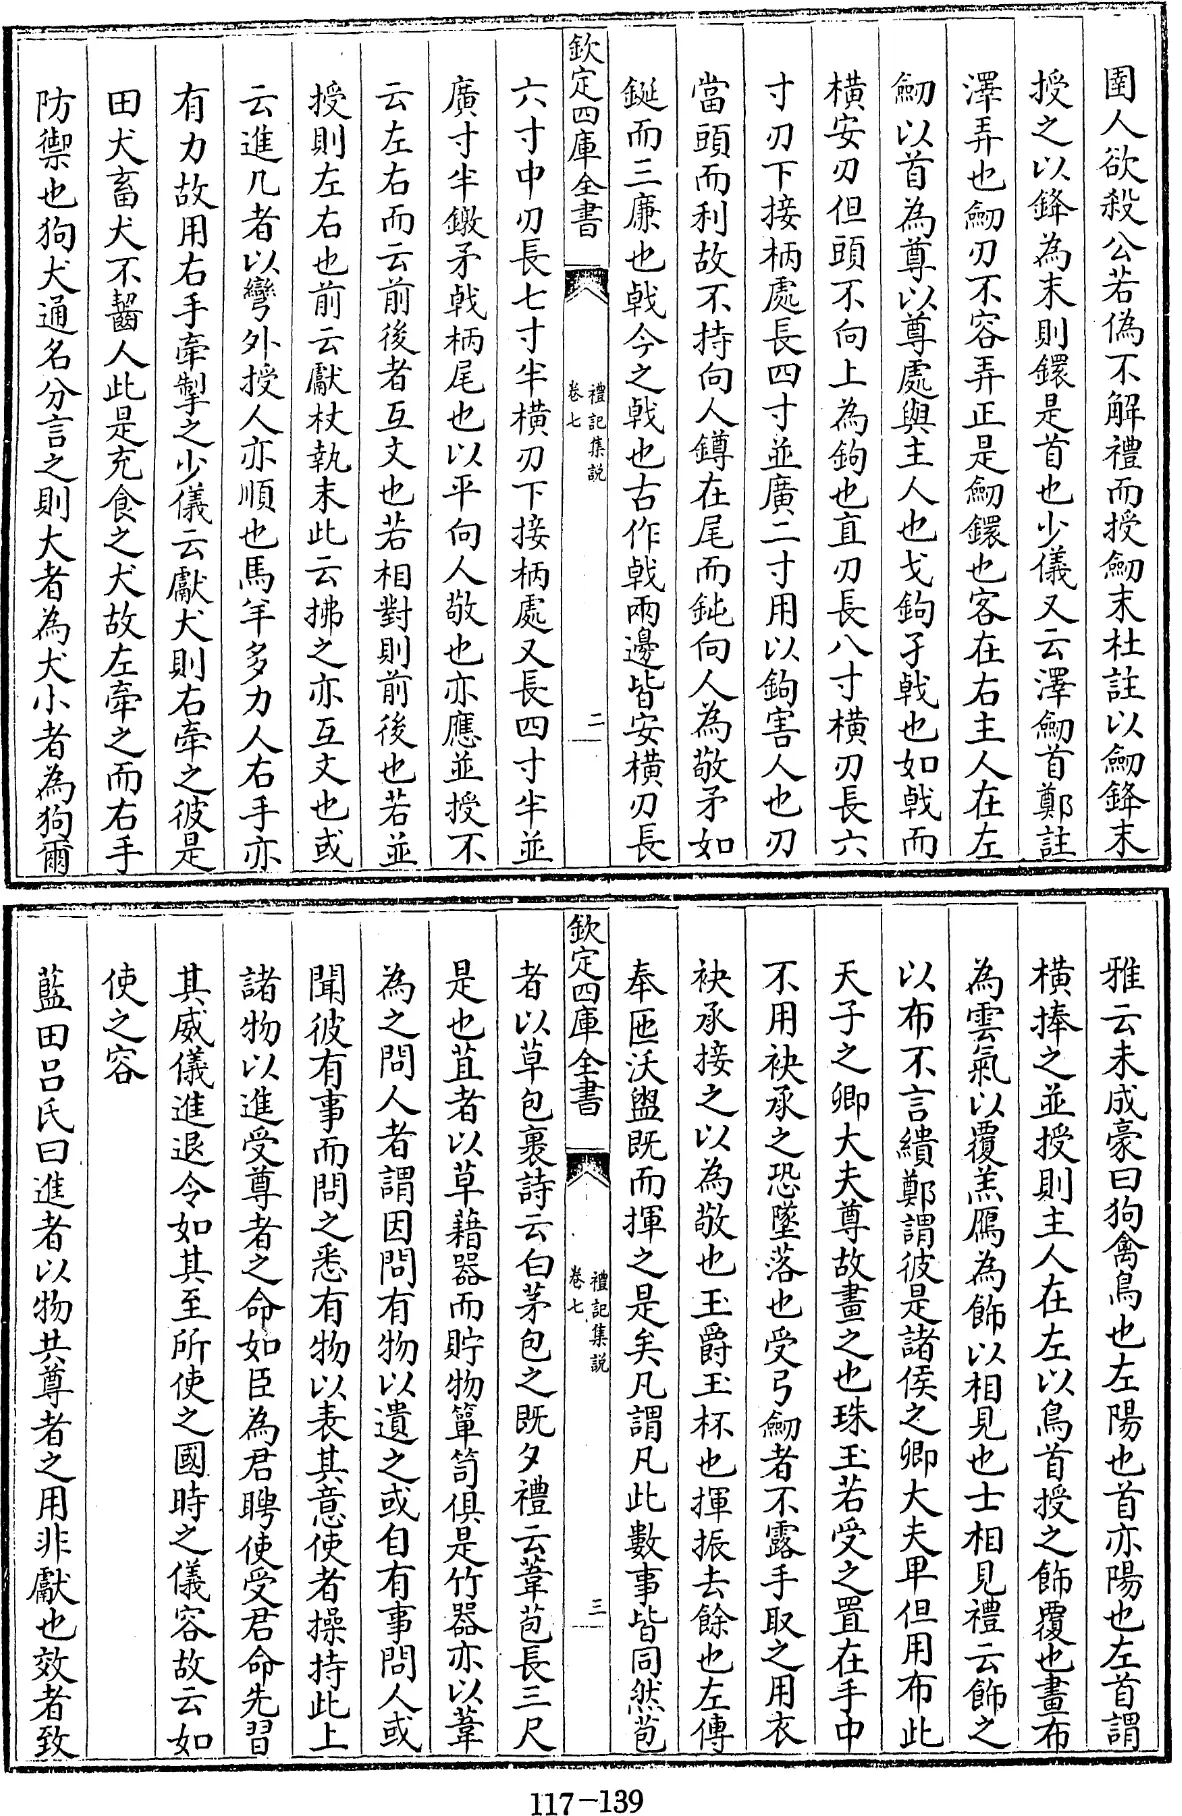 圉人欲殺公若偽不解禮而授劒末杜註以劒鋒末
授之以鋒為末則鐶是首也少儀又云澤劒首鄭註
澤弄也劒刃不容弄正是劒鐶也客在右主人在左
劒以首為尊以尊處與主人也戈鉤孑戟也如戟而
橫安刃但頭不向上為鉤也直刃長八寸橫刃長六
寸刃下接柄處長四寸並廣二寸用以鉤害人也刃
當頭而利故不持向人鐏在尾而鈍向人為敬矛如
鋋而三廉也戟今之戟也古作戟兩邊皆安橫刃長
欽定四庫全書
禮記集說
卷七
二
六寸中刃長七寸半橫刃下接柄處又長四寸半並
廣寸半鐓矛戟柄尾也以平向人敬也亦應並授不
云左右而云前後者互文也若相對則前後也若並
授則左右也前云獻杖執末此云拂之亦互文也或
云進几者以彎外授人亦順也馬羊多力人右手亦
有力故用右手牽掣之少儀云獻犬則右牽之彼是
田犬畜犬不齧人此是充食之犬故左牽之而右手
防禦也狗犬通名分言之則大者為犬小者為狗爾
雅云未成豪曰狗禽鳥也左陽也首亦陽也左首謂
橫捧之並授則主人在左以鳥首授之飾覆也畫布
為雲氣以覆羔鴈為飾以相見也士相見禮云飾之
以布不言繢鄭謂彼是諸侯之卿大夫卑但用布此
天子之卿大夫尊故畫之也珠玉若受之置在手中
不用袂承之恐墜落也受弓劒者不露手取之用衣
袂承接之以為敬也玉爵玉杯也揮振去餘也左傳
奉匜沃盥既而揮之是矣凡謂凡此數事皆同然苞
欽定四庫全書
禮記集說
卷七
三
者以草包裹詩云白茅包之既夕禮云葦苞長三尺
是也苴者以草藉器而貯物簞笥俱是竹器亦以葦
為之問人者謂因問有物以遺之或自有事問人或
聞彼有事而問之悉有物以表其意使者操持此上
諸物以進受尊者之命如臣為君聘使受君命先習
其威儀進退令如其至所使之國時之儀容故云如
使之容
藍田呂氏曰進者以物共尊者之用非獻也效者致
117-139